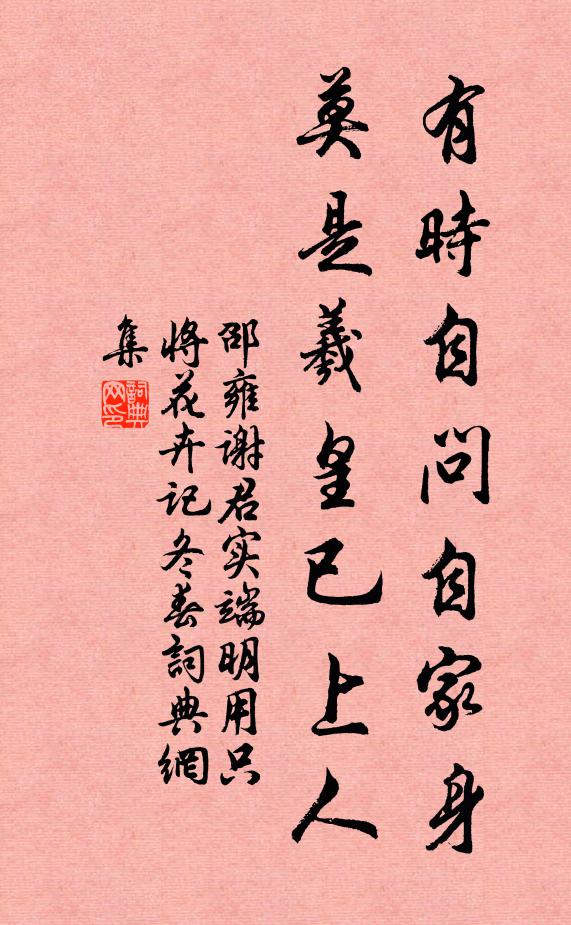 有時自問自家身
莫是羲皇已上人
邵雍谢君实端明用只
将花卉记冬春詞典網
集
詞典网印